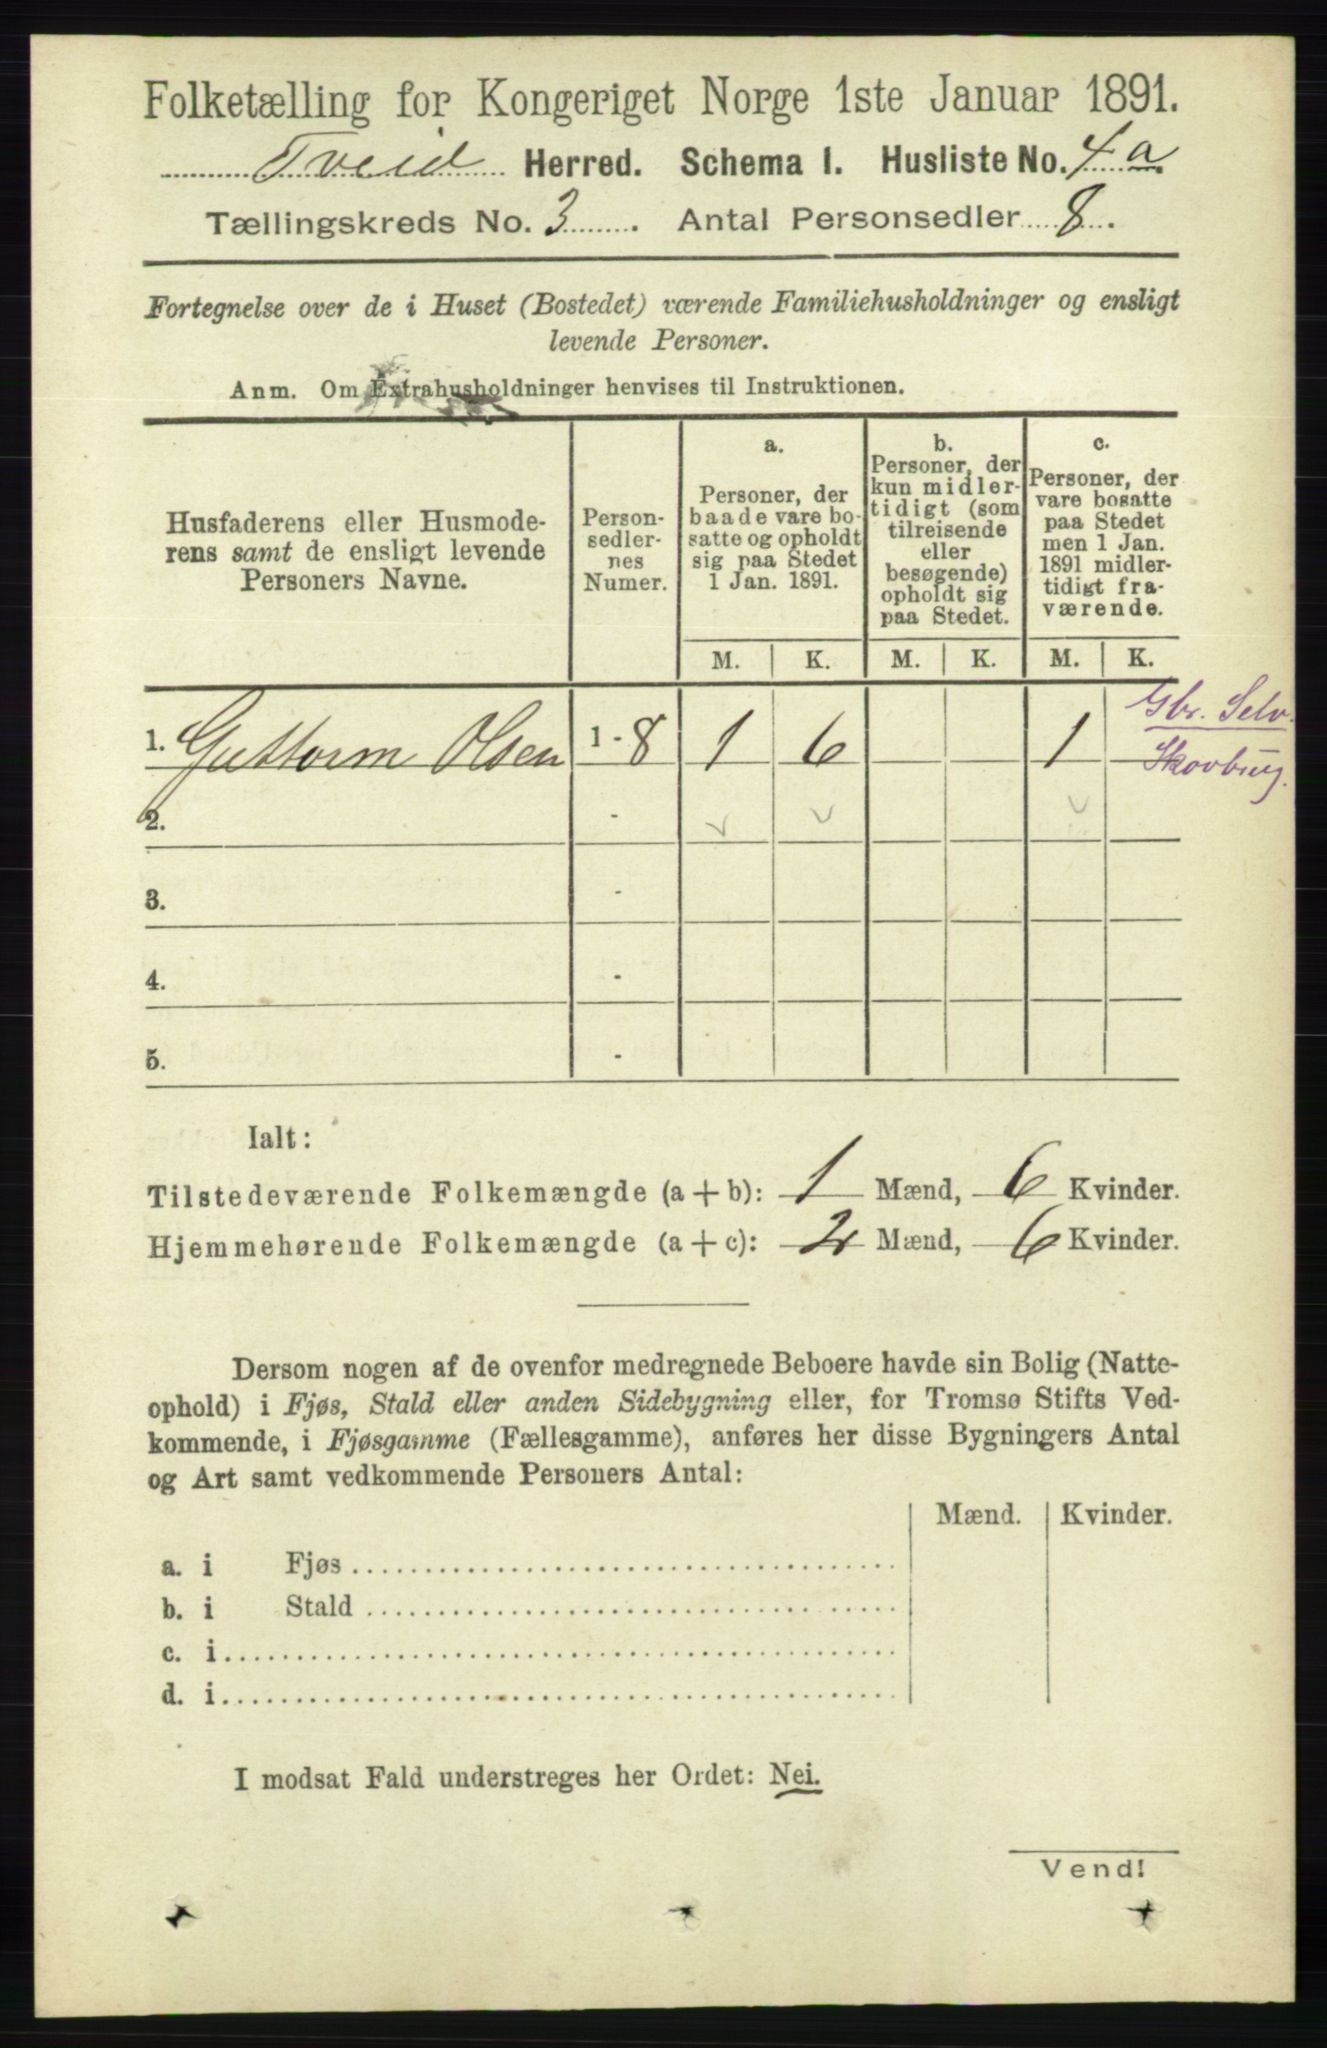 Folketælling for Kongeriget Norge 1ste Januar 1891.
Tveid Herred. Schema I. Husliste No. 4 a
Tællingskreds No. 3. Antal Personsedler 8.
Fortegnelse over de i Huset (Bostedet) værende Familiehusholdninger og ensligt
levende Personer.
Anm. Om Extrahusholdninger henvises til Instruktionen.
Husfaderens eller Husmode-
rens samt de ensligt levende
Personers Navne.
Person-
sedler-
nes
Numer.
a.
Personer, der
baade vare bo-
satte og opholdt
sig paa Stedet
1 Jan. 1891.
b.
Personer, der
kun midler-
tidigt (som
tilreisende
eller
besøgende)
opholdt sig
paa Stedet.
c.
Personer, der
vare bosatte
paa Stedet
men 1 Jan.
1891 midler-
tidigt fra-
værende.
M. K. M. K. M. K.
Gbr. Selv.
1. Guttorm Olsen 1 - 8 1 6 1
Skovbrug.
2. -
3. -
4. -
5. -
Ialt:
Tilstedeværende Folkemængde (a + b): 1 Mænd, 6 Kvinder.
Hjemmehørende Folkemængde (a + c): 2 Mænd, 6 Kvinder.
Dersom nogen af de ovenfor medregnede Beboere havde sin Bolig (Natte-
ophold) i Fjøs, Stald eller anden Sidebygning eller, for Tromsø Stifts Ved-
kommende, i Fjøsgamme (Fællesgamme), anføres her disse Bygningers Antal
og Art samt vedkommende Personers Antal:
Mænd. Kvinder.
a. i Fjøs
b. i Stald
c. i
d. i
I modsat Fald understreges her Ordet: Nei.
Vend!